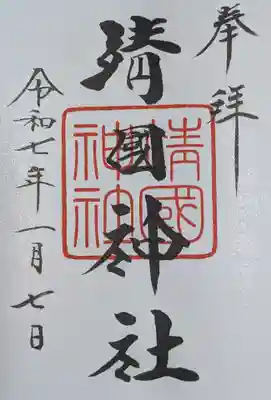 奉拝
靖國神社
靖國神社
令和七年一月七日